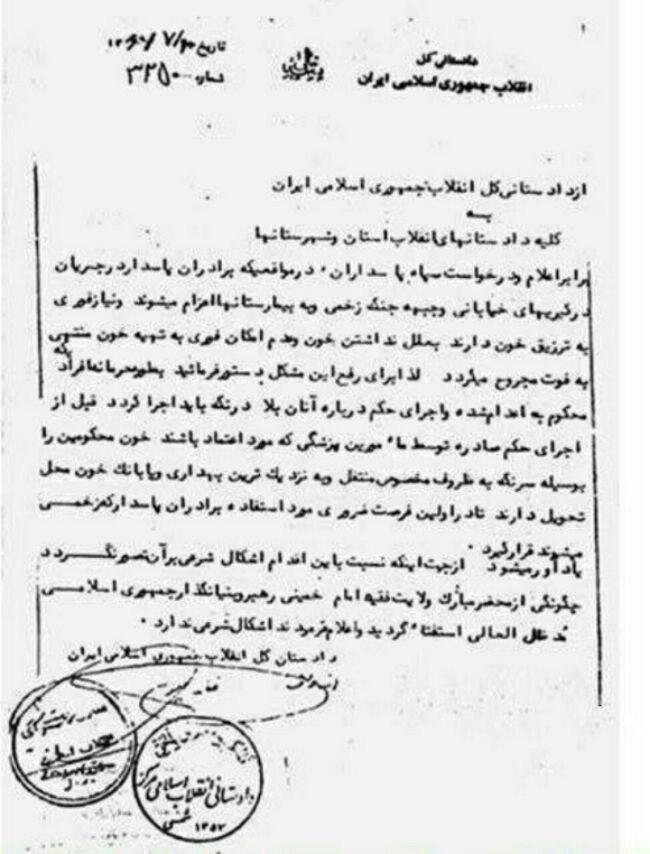 تاریخ
شماره ۳۲۵۰۰
دادستانی کل
انقلاب جمهوری اسلامی ایران
از دادستانی کل انقلاب جمهوری اسلامی ایران
به
کلیه دادستانهای انقلاب استان وشهرستانها
برابر اعلام ودرخواست سپاه پاسداران ، در مواقعیکه برادران پاسدار درجریان
درگیریهای خیابانی وجبهه جنگ زخمی وبه بیمارستانها اعزام میشوند ونیاز فوری
به تزریق خون دارند بعلل نداشتن خون وعدم امکان فوری به تهیه خون منتهی
به فوت مجروح میگردد لذا برای رفع این مشکل دستور فرمائید بطور محرمانه افرادیکه
محکوم به اعدام شده واجرای حکم درباره آنان بلادرنگ باید اجرا گردد قبل از
اجرای حکم صادره توسط مامورین پزشکی که مورد اعتماد باشند خون محکومین را
بوسیله سرنگ به ظروف مخصوص منتقل وبه نزدیك ترین بهداری ویابانك خون محل
تحویل دارند تا دراولین فرصت ضروری مورد استفاده برادران پاسدار که زخمی
میشوند قرارگیرد .
یادآور میشود ازجهت اینکه نسبت باین اقدام اشکال شرعی برآن تصور نگردد
چگونگی ازمحضر مبارك ولایت فقیه امام خمینی رهبر وبنیانگذار جمهوری اسلامی
مد ظله العالی استفتاء گردید واعلام فرمودند اشکال شرعی ندارد .
دادستان کل انقلاب جمهوری اسلامی ایران
دادستانی انقلاب اسلامی مرکز